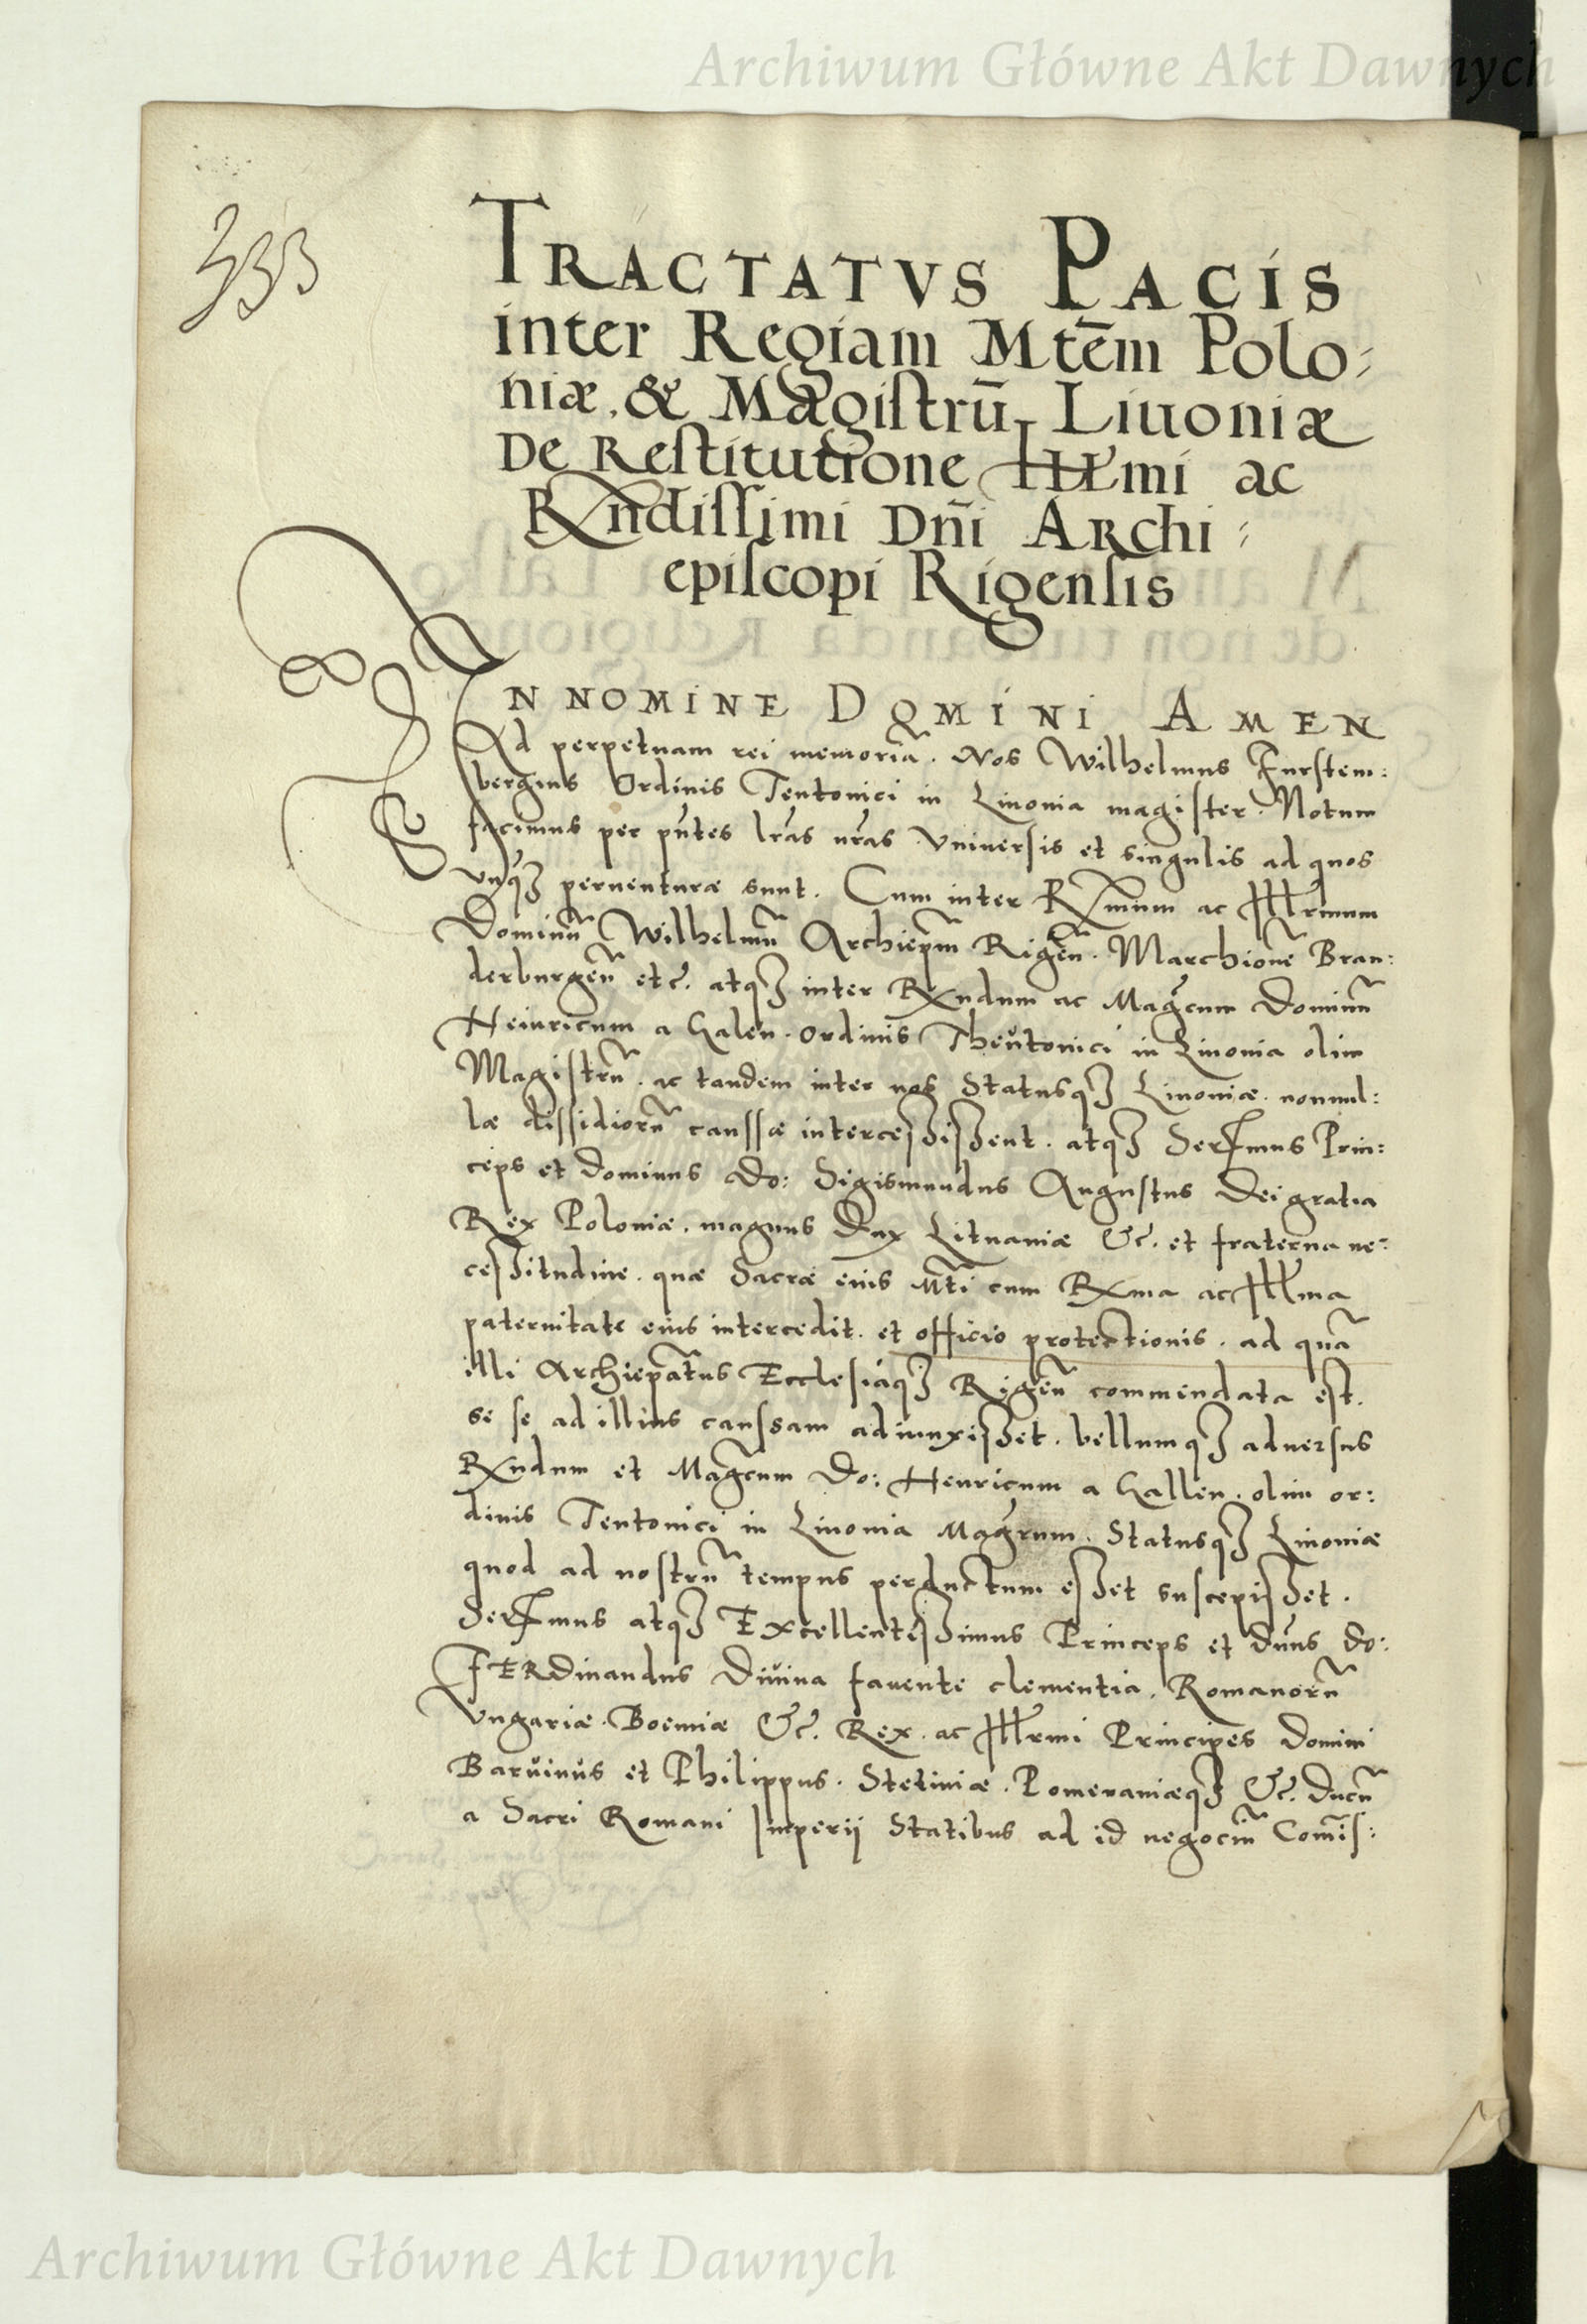 Archiwum Główne Akt Dawnych
333
TRACTATVS PACIS
inter Regiam Mtēm Polo:
niæ, & Magiſtrū Liuoniæ
De Reſtitutione Illmi ac
Rndiſſimi Dn̄i Archi:
epiſcopi Rigenſis
IN NOMINE DOMINI AMEN
Ad perpetuam rei memoriā. Nos Wilhelmus Furſtem:
bergius Ordinis Teutonici in Liuonia magiſter. Notum
facimus per pn̄tes lr̄as nr̄as vniuerſis et singulis ad quos
vnqꝫ peruenturæ sunt. Cum inter Rmum ac Illrmum
Dominū Wilhelmū Archiepm̄ Rigen̄. Marchionē Bran:
derburgen̄ etc. atqꝫ inter Rndum ac Magcum Dominū
Heinricum a Galen. Ordinis Theutonici in Liuonia olim
Magiſtrū. ac tandem inter nos Statusqꝫ Liuoniæ. nonnul:
læ diſſidiorū cauſſæ interceſſiſſent. atqꝫ Serſmus Prin:
ceps et Dominus Do: Sigismundus Auguſtus Dei gratia
Rex Poloniæ. magnus Dux Lituaniæ &c. et fraterna ne:
ceſſitudine. quæ Sacræ eius Mti cum Rma ac Illma
paternitate eius intercedit. et officio protectionis. ad quā
illi Archiepat̄us Eccleſiáqꝫ Rigen̄ commendata eſt.
se ſe ad illius cauſsam adiunxiſſet. bellumqꝫ aduerſus
Rndum et Magcum Do: Henricum a Gallen. olim or:
dinis Teutonici in Liuonia Magrum. Statusqꝫ Liuoniæ
quod ad noſtrū tempus perductum eſſet suscepiſſet.
Serſmus atqꝫ Excellentiſſimus Princeps et Dn̄us Do:
FERdinandus Diuina fauente clementia. Romanorū
Vngariæ. Boemiæ &c. Rex. ac Illrmi Principes Domini
Baruinus et Philippus. Stetiniæ. Pomeraniæqꝫ &c. Ducū
a Sacri Romani Imperij Statibus ad id negociū Comiſ:
Archiwum Główne Akt Dawnych